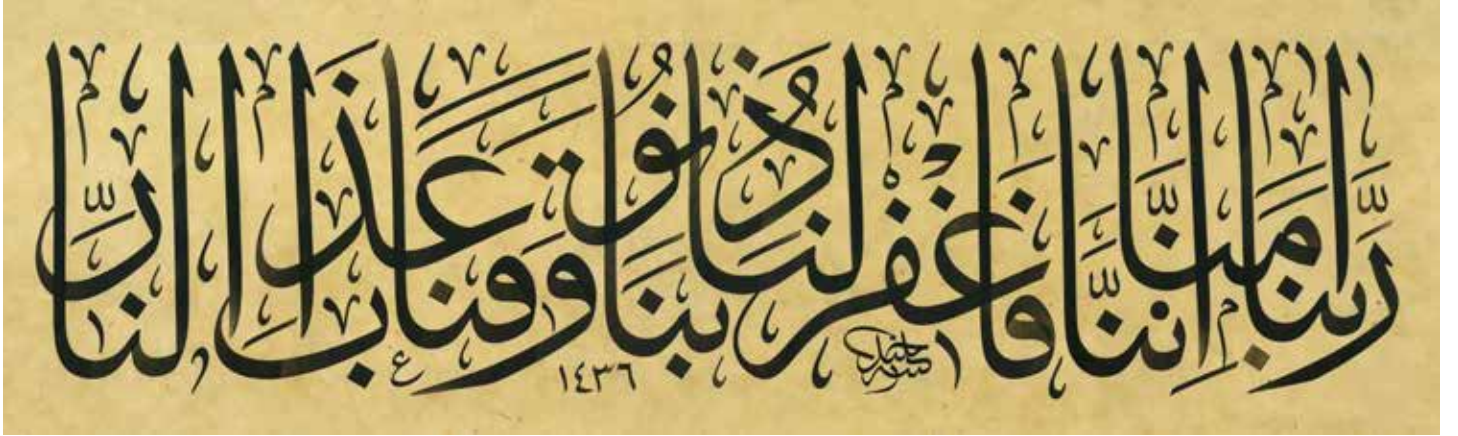 رَبَّنَا إِنَّنَا آمَنَّا فَاغْفِرْ لَنَا ذُنُوبَنَا وَقِنَا عَذَابَ النَّارِ
١٤٣٦